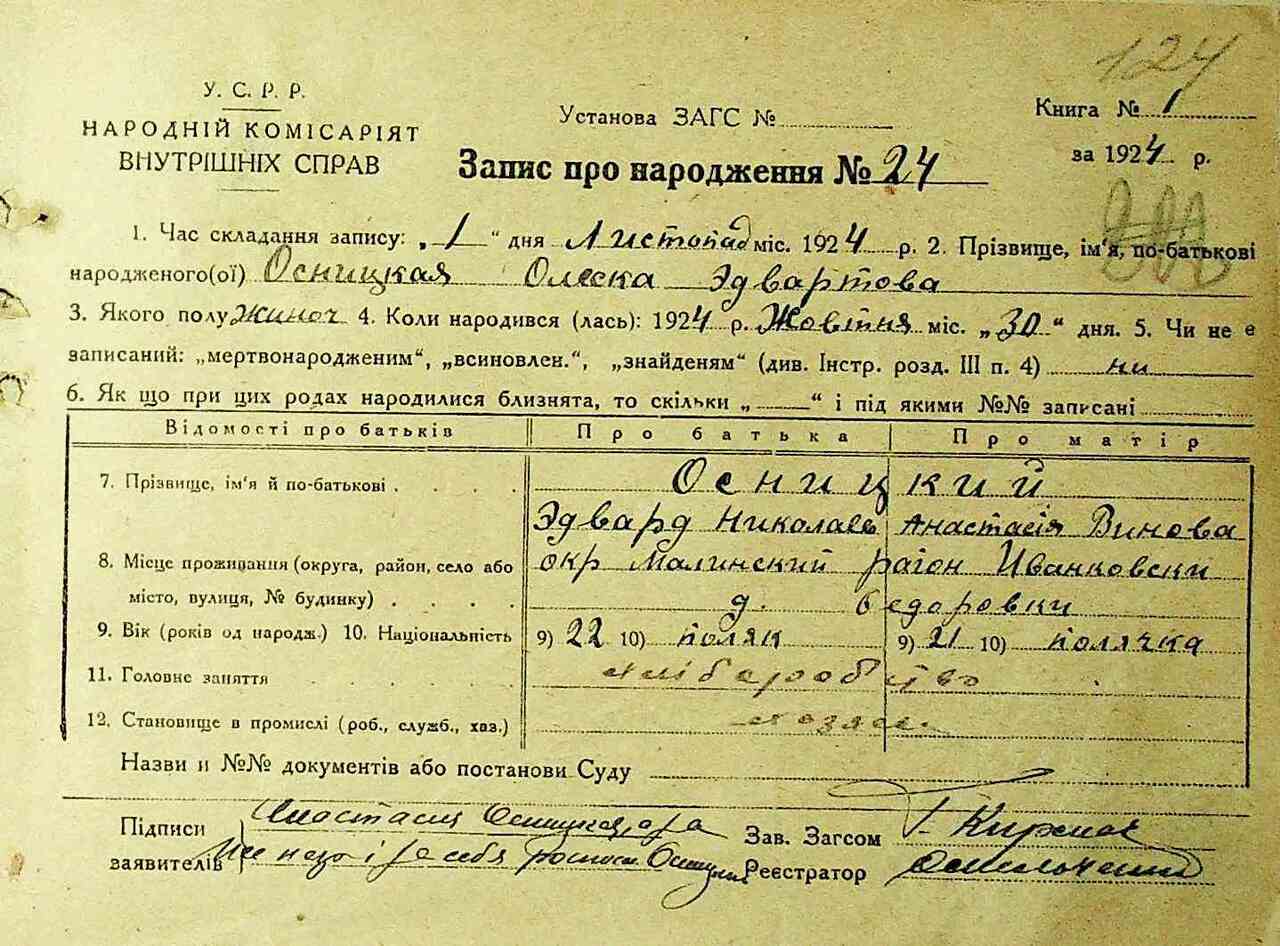 124
У. С. Р. Р.
НАРОДНІЙ КОМІСАРІЯТ
ВНУТРІШНІХ СПРАВ
Установа ЗАГС №
Книга № 1
за 1924 р.
Запис про народження № 24
1. Час складання запису: „1“ дня Листопад міс. 1924 р. 2. Прізвище, ім'я, по-батькові
народженого(ої) Осницкая Олеска Эдвартова
3. Якого полу жиноч 4. Коли народився (лась): 1924 р. Жовтня міс. „30“ дня. 5. Чи не є
записаний: „мертвонародженим“, „всиновлен.“, „знайденям“ (див. Інстр. розд. III п. 4) ни
6. Як що при цих родах народилися близнята, то скільки „ “ і під якими №№ записані
Відомості про батьків Про батька Про матір
7. Прізвище, ім'я й по-батькові . . . . Осницкий
Эдвард Николаев Анастасія Винова
8. Місце проживання (округа, район, село або окр Малинский район Иванковски
місто, вулиця, № будинку) . . . . д. Федоровки
9. Вік (років од народж.) 10. Національність 9) 22 10) поляк 9) 21 10) полячка
11. Головне заняття хліборобство
12. Становище в промислі (роб., служб., хаз.) хозяен
Назви и №№ документів або постанови Суду
Підписи Анастасия Осницкая, а за
заявителів і за себя Осницкий
Зав. Загсом
Реєстратор